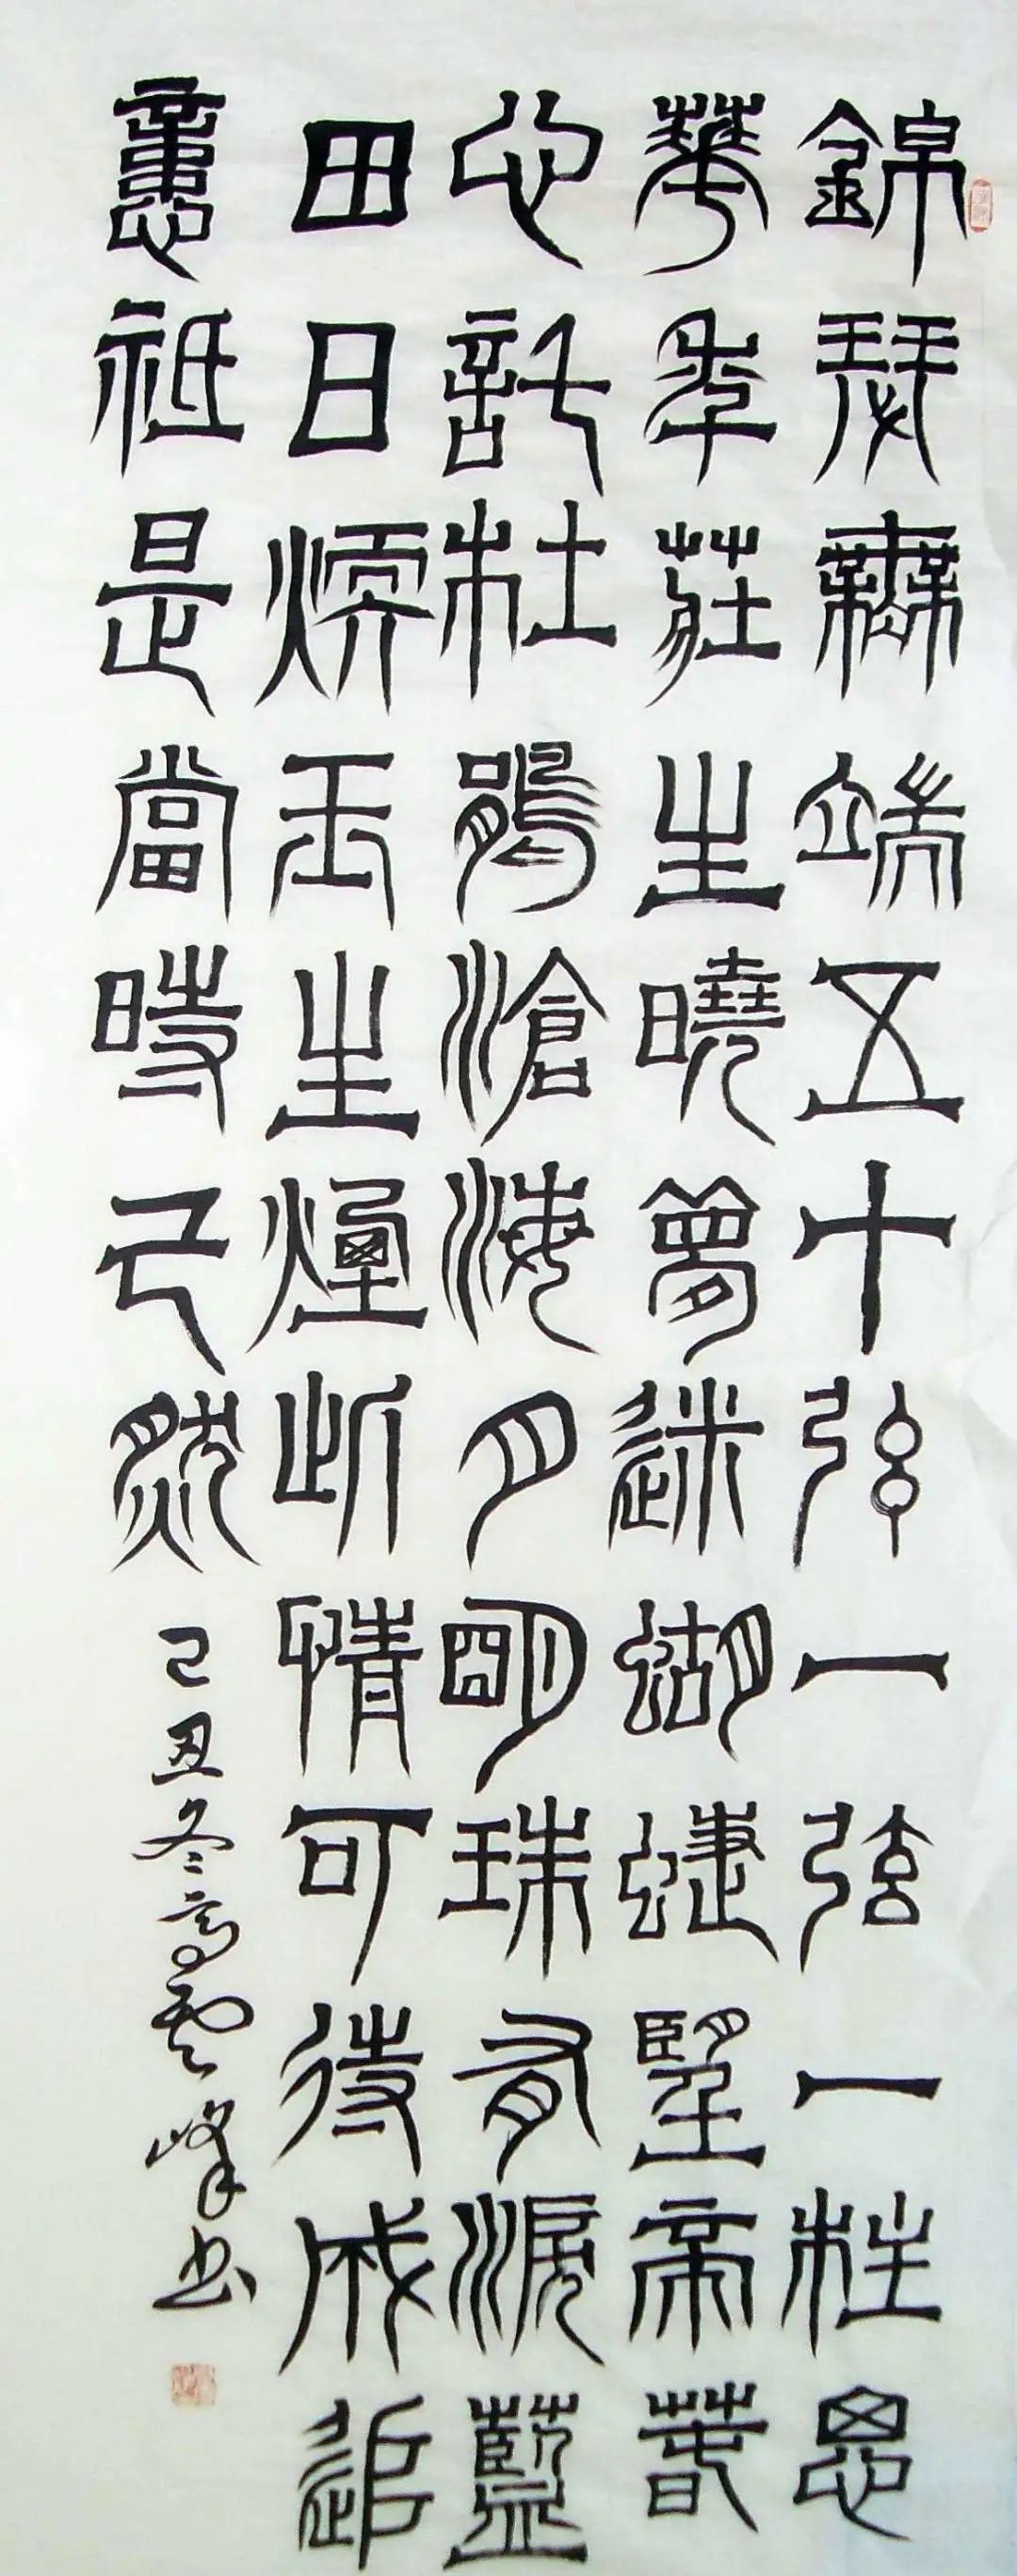 錦瑟無端五十弦一弦一柱思
華年莊生曉夢迷蝴蝶望帝春
心託杜鵑滄海月明珠有淚藍
田日煗玉生煙此情可待成追
憶祇是當時已然
己丑冬高雲峰书